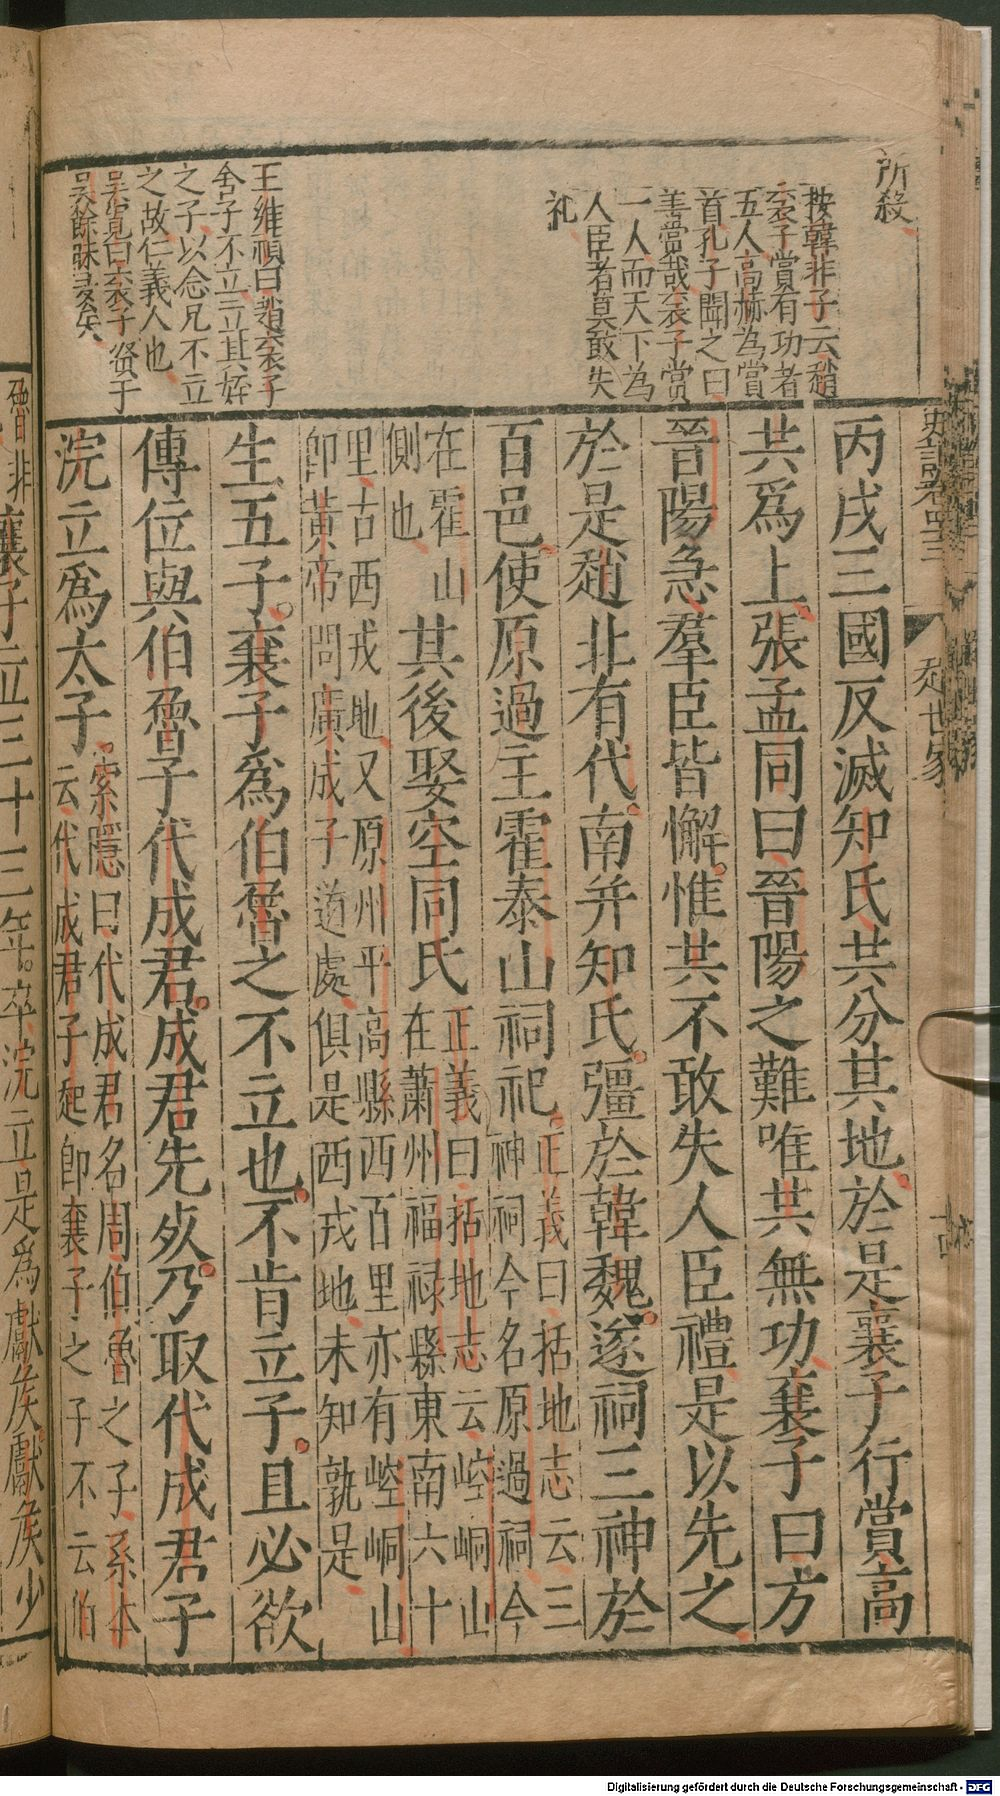 史記卷四十三
趙世家
十
所殺
按韓非子云趙
襄子賞有功者
五人高赫為賞
首孔子聞之曰
善賞哉襄子賞
一人而天下為
人臣者莫敢失
礼
王維禎曰趙襄子
舍子不立三立其姪
之子以念兄不立
之故仁義人也
吳寬曰襄子賢于
吳餘昧夷矣
丙戌三國反滅知氏共分其地於是襄子行賞高
共爲上張孟同曰晉陽之難唯共無功襄子曰方
晉陽急羣臣皆懈惟共不敢失人臣禮是以先之
於是趙北有代南并知氏彊於韓魏遂祠三神於
百邑使原過主霍泰山祠祀正義曰括地志云三
神祠今名原過祠今
在霍山
側也
其後娶空同氏正義曰括地志云崆峒山
在蕭州福祿縣東南六十
里古西戎地又原州平高縣西百里亦有崆峒山
卽黃帝問廣成子道處俱是西戎地未知孰是
生五子襄子爲伯魯之不立也不肯立子且必欲
傳位與伯魯子代成君成君先死乃取代成君子
浣立爲太子索隱曰代成君名周伯魯之子系本
云代成君子起卽襄子之子不云伯
魯非襄子立三十三年卒浣立是爲獻侯獻侯少
Digitalisierung gefördert durch die Deutsche Forschungsgemeinschaft - DFG